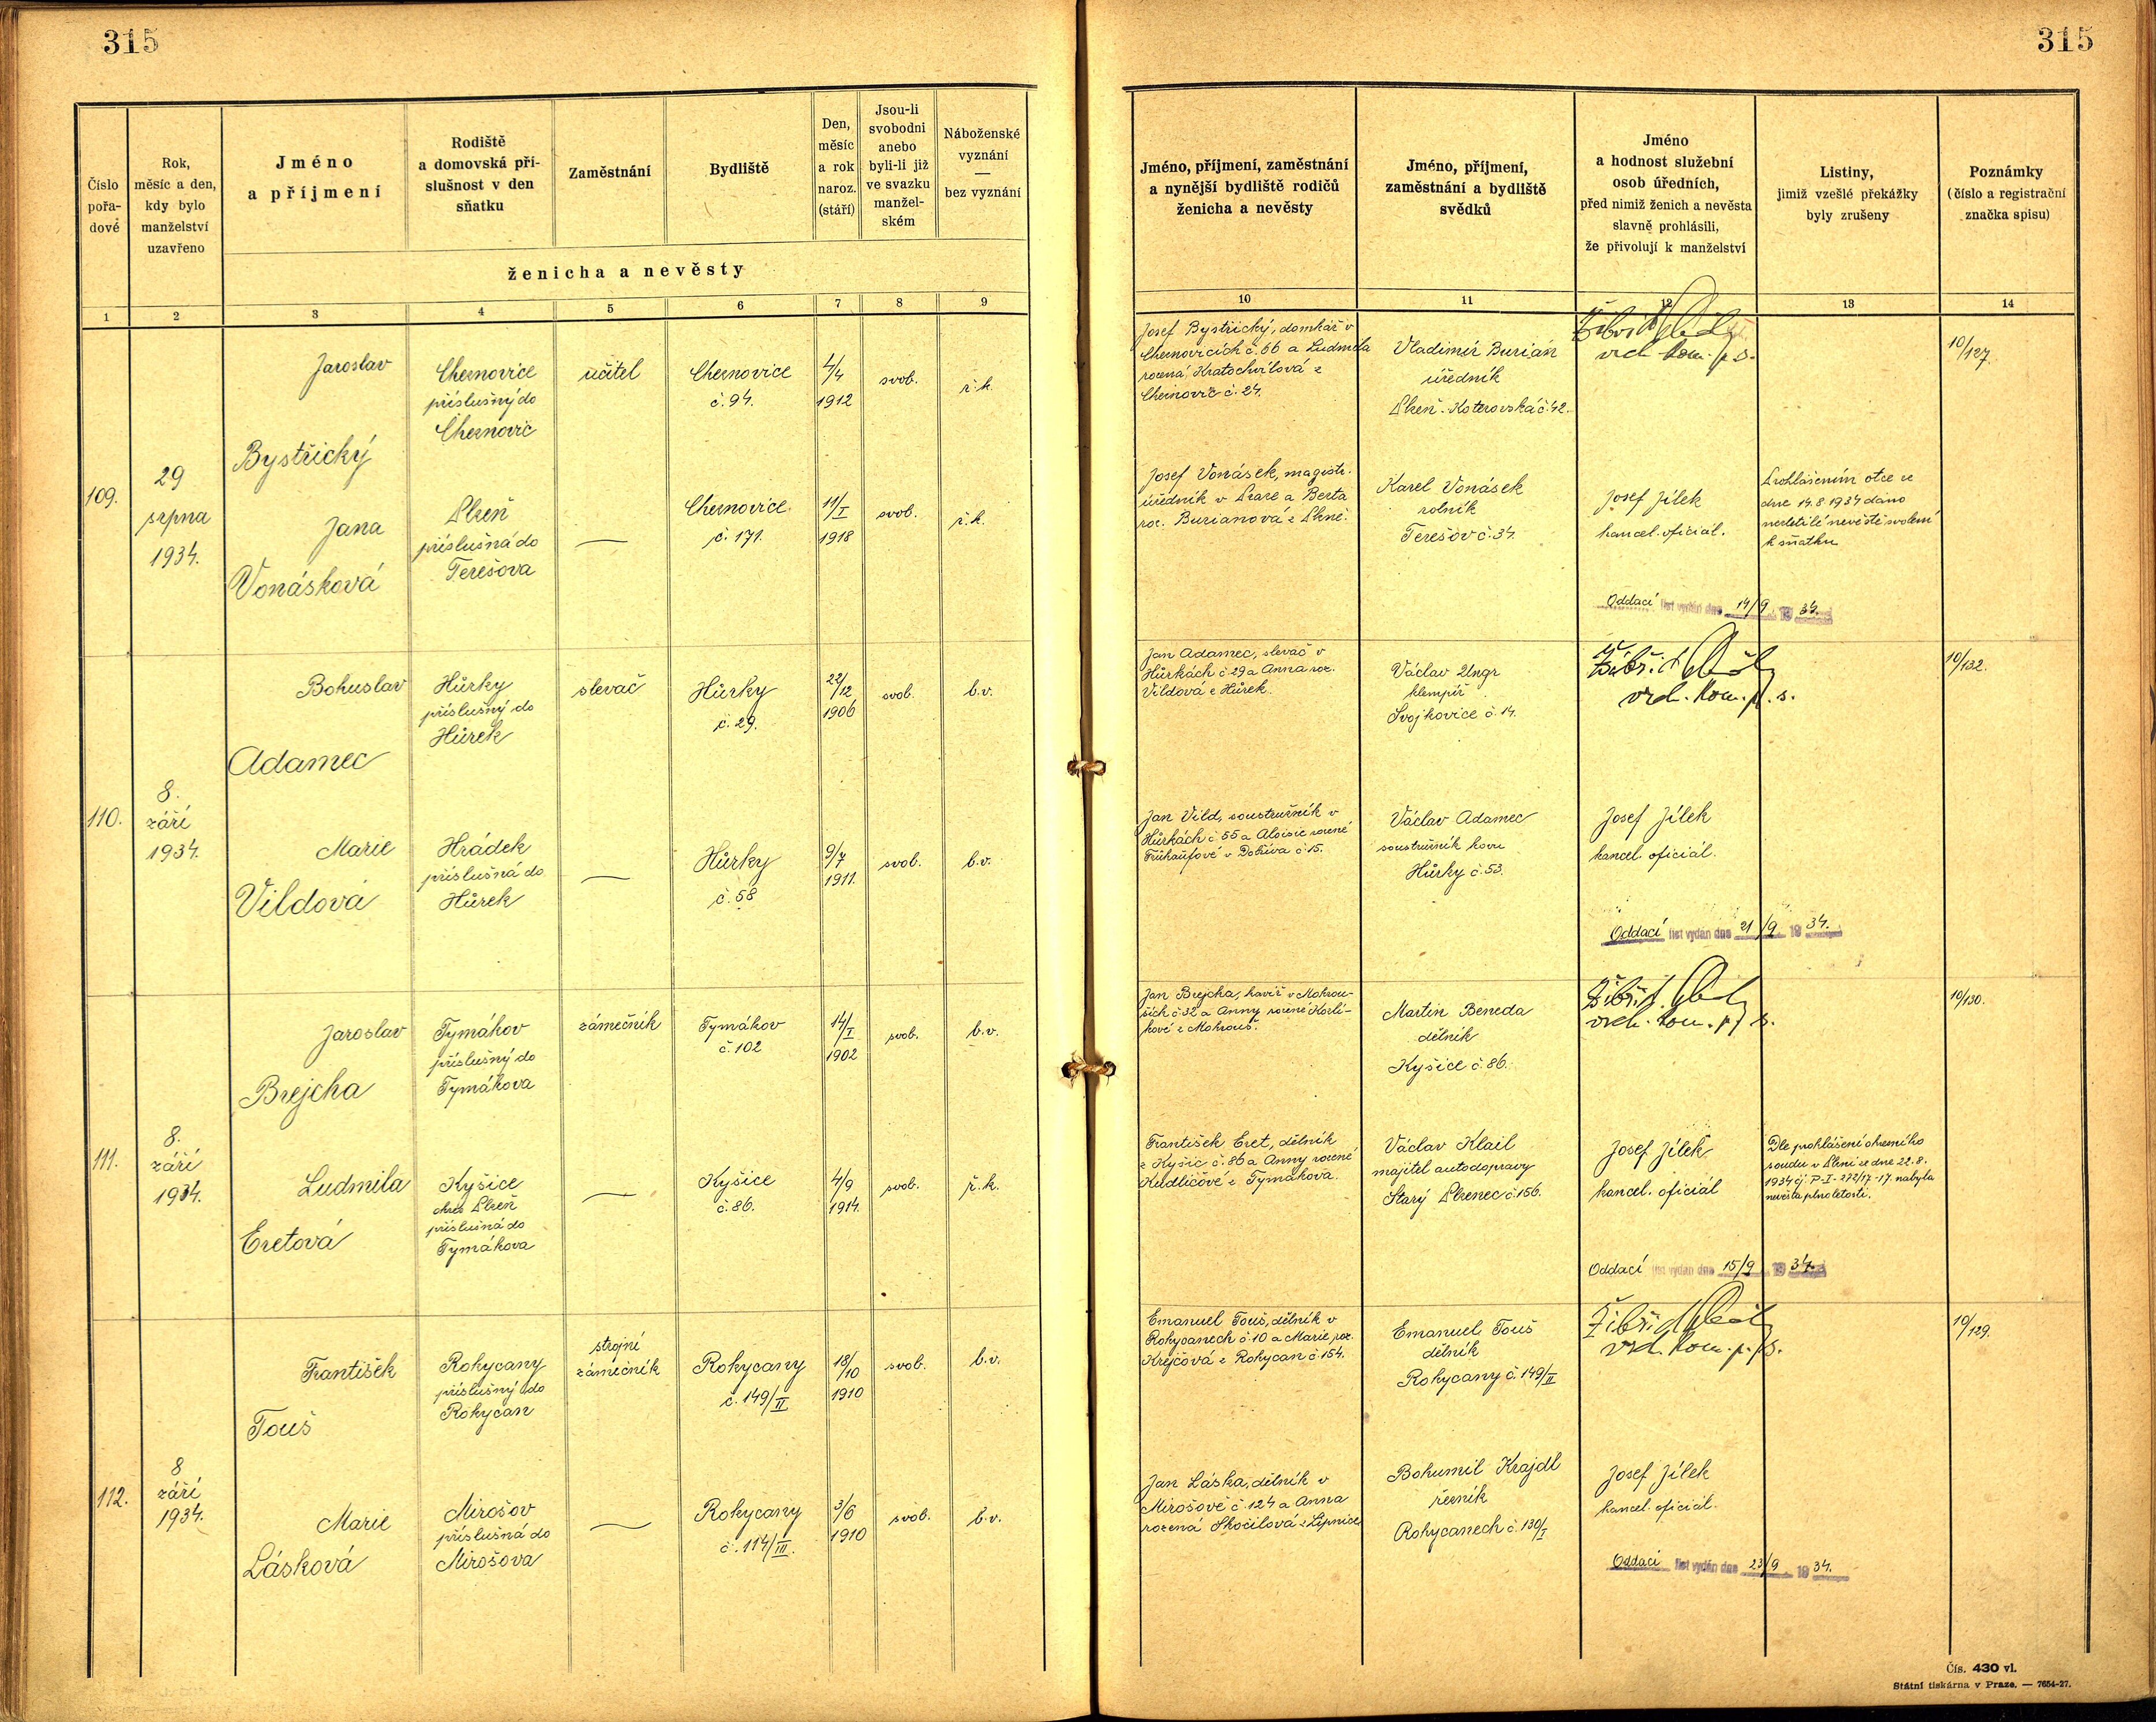 315
315
Číslo pořa- dové
Rok, měsíc a den, kdy bylo manželství uzavřeno
Jméno a příjmení
Rodiště a domovská pří- slušnost v den sňatku
Zaměstnání
Bydliště
Den, měsíc a rok naroz. (stáří)
Jsou-li svobodni anebo byli-li již ve svazku manžel- ském
Náboženské vyznání — bez vyznání
ženicha a nevěsty
Jméno, příjmení, zaměstnání a nynější bydliště rodičů ženicha a nevěsty
Jméno, příjmení, zaměstnání a bydliště svědků
Jméno a hodnost služební osob úředních, před nimiž ženich a nevěsta slavně prohlásili, že přivolují k manželství
Listiny, jimiž vzešlé překážky byly zrušeny
Poznámky (číslo a registrační značka spisu)
1 2 3 4 5 6 7 8 9 10 11 12 13 14
109.
29
srpna
1934.
Jaroslav
Bystřický
Chernovice
příslušný do
Chernovic
učitel
Chernovice
č. 94.
4/4
1912
svob.
ř.k.
Josef Bystřický, domkář v
Chernovicích č. 66 a Ludmila
rozená Kratochvilová z
Chernovic č. 24.
Vladimír Burian
úředník
Plzeň - Koterovská č. 42.
vrch. kom. p. s.
10/127.
Jana
Vonásková
Plzeň
příslušná do
Terešova
—
Chernovice
č. 171.
11/I
1918
svob.
ř.k.
Josef Vonásek, magistr.
úředník v Praze a Berta
roz. Burianová z Plzně.
Karel Vonásek
rolník
Terešov č. 34.
Josef Jílek
kancel. oficiál.
Prohlášením otce ze
dne 14.8.1934 dáno
nezletilé nevěstě svolení
k sňatku
Oddací list vydán dne 14/9 1934.
110.
8.
září
1934.
Bohuslav
Adamec
Hůrky
příslušný do
Hůrek
slevač
Hůrky
č. 29.
22/12
1906
svob.
b.v.
Jan Adamec, slevač v
Hůrkách č 29 a Anna roz.
Vildová z Hůrek.
Václav Ungr
klempíř
Svojkovice č. 14.
vrch. kom. p. s.
10/132.
Marie
Vildová
Hrádek
příslušná do
Hůrek
—
Hůrky
č. 58
9/7
1911.
svob.
b.v.
Jan Vild, soustružník v
Hůrkách č 55 a Aloisie rozené
Frühaufové v Dobříva č 15.
Václav Adamec
soustružník kovu
Hůrky č. 53.
Josef Jílek
kancel. oficiál.
Oddací list vydán dne 21/9 1934.
111.
8.
září
1934.
Jaroslav
Brejcha
Tymákov
příslušný do
Tymákova
zámečník
Tymákov
č. 102
14/I
1902
svob.
b.v.
Jan Brejcha, havíř v Mokrou-
ších č 32 a Anny rozené
z Mokrouš.
Martin Beneda
dělník
Kyšice č. 86.
vrch. kom. p. s.
10/130.
Ludmila
Eretová
Kyšice
okres Plzeň
příslušná do
Tymákova
—
Kyšice
č. 86.
4/9
1914.
svob.
ř.k.
František Eret, dělník
z Kyšic č. 86 a Anny rozené
Kudličové z Tymákova.
Václav Klail
majitel autodopravy
Starý Plzenec č. 156.
Josef Jílek
kancel. oficiál
Dle prohlášení okresního
soudu v Plzni ze dne 22.8.
1934 čj. P-I-272/17-17. nabyla
nevěsta plnoletosti.
Oddací list vydán dne 15/9 1934.
112.
8
září
1934.
František
Touš
Rokycany
příslušný do
Rokycan
strojní
zámečník
Rokycany
č. 149/II
18/10
1910
svob.
b.v.
Emanuel Touš, dělník v
Rokycanech č 10 a Marie roz.
Krejčová z Rokycan č. 154.
Emanuel Touš
dělník
Rokycany č. 149/II
vrch. kom. p. s.
10/129.
Marie
Lásková
Mirošov
příslušná do
Mirošova
—
Rokycany
č. 114/III.
3/6
1910
svob.
b.v.
Jan Láska, dělník v
Mirošově č. 124 a Anna
rozená Skočilová z Lipnice
Bohumil Krajdl
řezník
Rokycanech č. 130/I
Josef Jílek
kancel. oficiál.
Oddací list vydán dne 23/9 1934.
Čís. 430 vl.
Státní tiskárna v Praze. — 7654-27.